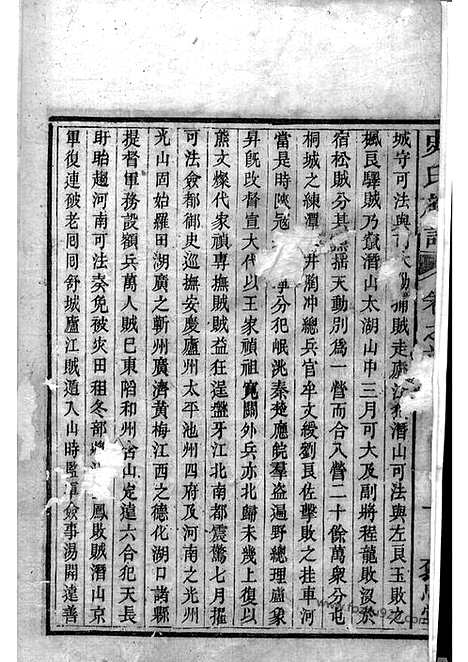 史氏
城守可法與 賊走廬江 潛山可法與左良玉敗之
楓良驛賊乃竄潛山太湖山中三月可大及副將程龍敗沒於
宿松賊分其 搖天動別為一營而合八營二十餘萬眾分屯
桐城之練潭 井陶沖總兵官牟文綬劉良佐擊敗之挂車河
當是時陝寇 分犯岷洮秦楚應皖羣盜遍野總理盧象
昇既改督宣大代以王家禎祖寬關外兵亦北歸未幾上復以
熊文燦代家禎專撫賊賊益狂逞盤牙江北南都震驚七月擢
可法僉都御史巡撫安慶廬州太平池州四府及河南之光州
光山固始羅田湖廣之蘄州廣濟黃梅江西之德化湖口諸縣
提督軍務設額兵萬人賊已東陷和州含山定遠六合犯天長
盱眙趨河南可法奏免被灾田租冬部 鳳敗賊潛山京
軍復連破老回回舒城廬江賊遁入山時監軍僉事湯開遠善